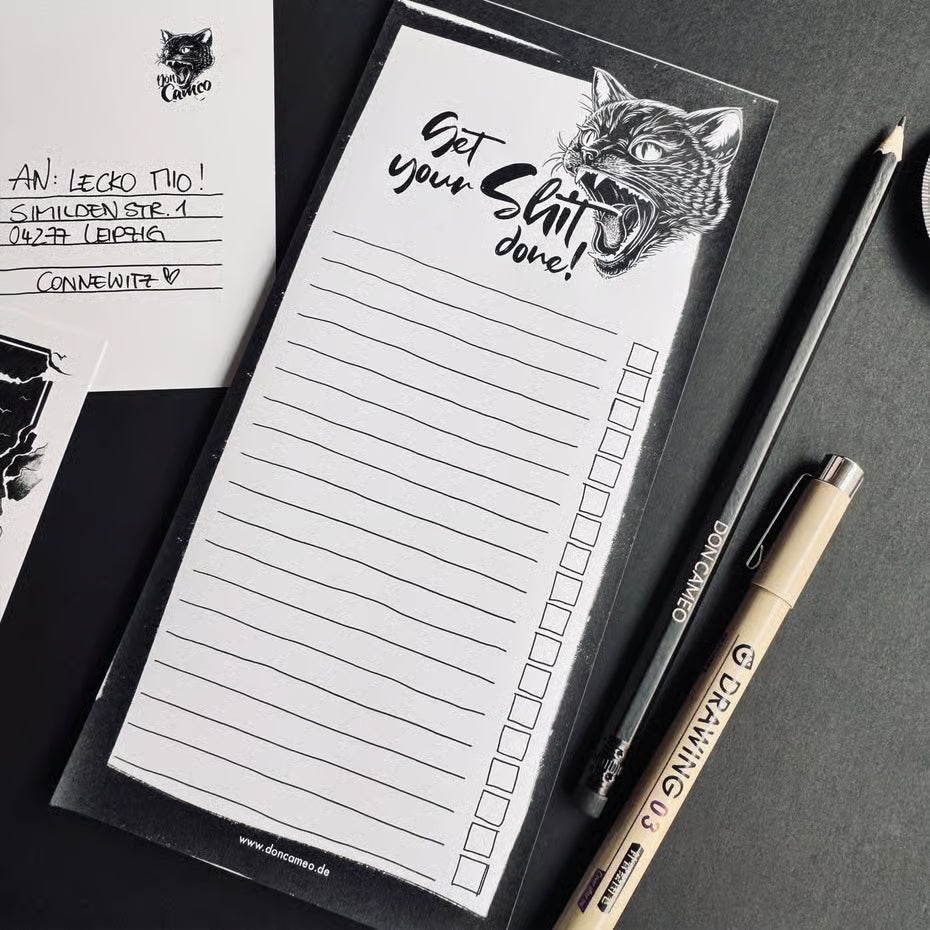 Don
Cameo
AN: LECKO MIO!
SIMILDENSTR. 1
04277 LEIPZIG
CONNEWITZ
Get
your Shit
done!
www.doncameo.de
DON CAMEO
DRAWING 03